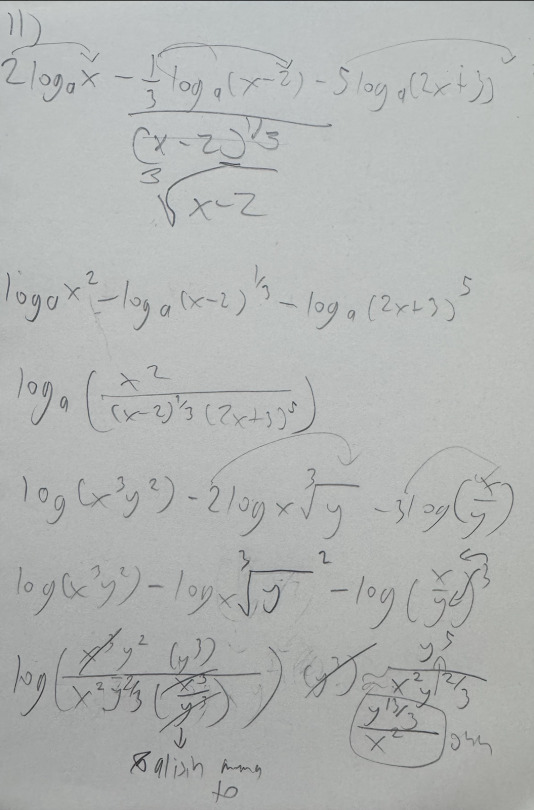 11)
2 logₐ x − 1/3 logₐ (x−2) − 5 logₐ (2x+3)
(x−2)^1/3
∛(x−2)
logₐ x² − logₐ (x−2)^1/3 − logₐ (2x+3)^5
logₐ (x² / ((x−2)^1/3 (2x+3)^5))
log (x³y²) − 2 log x ∛y − 3 log (x/y)
log (x³y²) − log x ∛y ² − log (x/y)³
log (x³ y² (y³) / (x² y^2/3 (x³/y³))) (y³) y⁵ / (x² y^2/3)
y^13/3 / x²